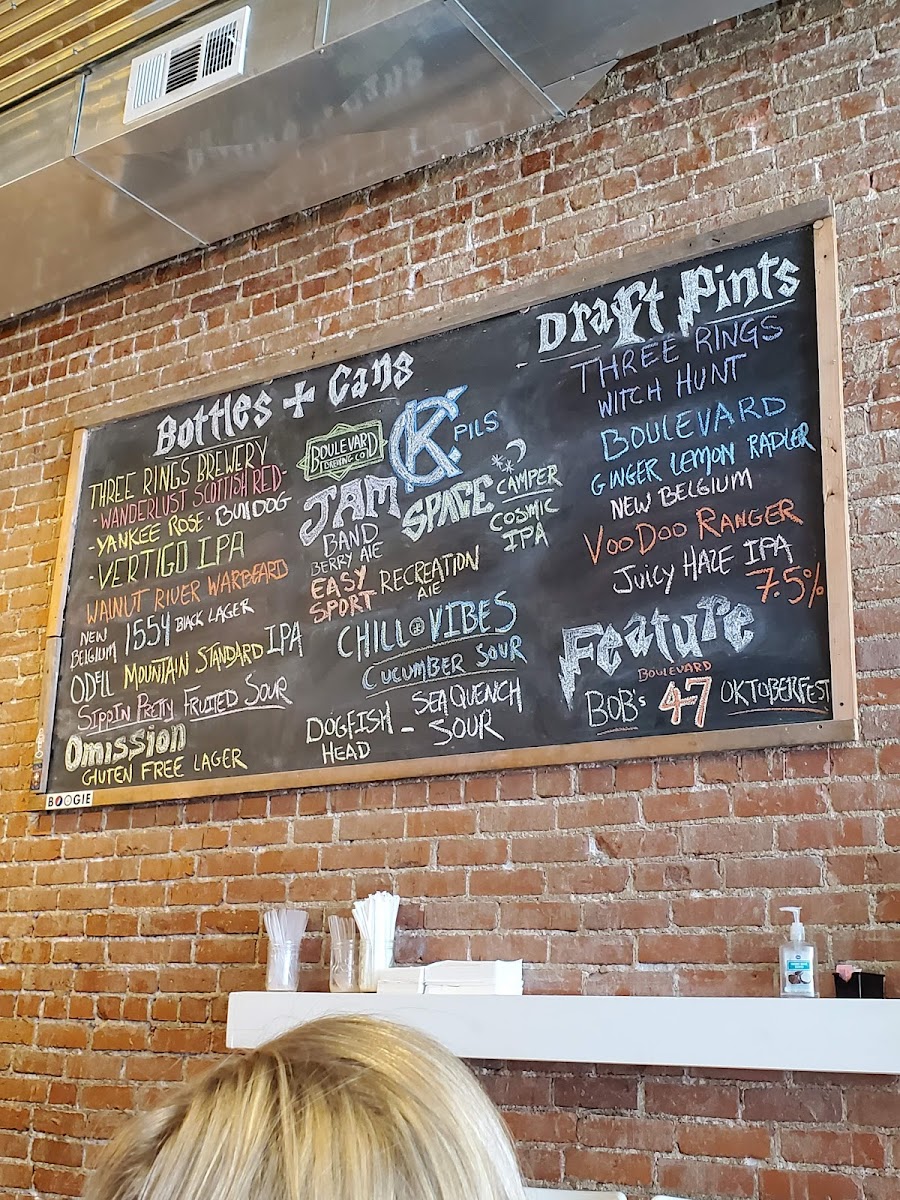 Bottles + Cans
THREE RINGS BREWERY
- WANDERLUST SCOTTISH RED -
- YANKEE ROSE · BUNDOG
- VERTIGO IPA
WALNUT RIVER WARBEARD
NEW BELGIUM 1554 BLACK LAGER
ODELL MOUNTAIN STANDARD IPA
SIPPIN PRETTY FRUITED SOUR
Omission
GLUTEN FREE LAGER
BOULEVARD
BREWING CO.
KC PILS
JAM
BAND
BERRY ALE
SPACE CAMPER
COSMIC
IPA
EASY
SPORT RECREATION
ALE
CHILL VIBES
CUCUMBER SOUR
DOGFISH
HEAD - SEAQUENCH
SOUR
Draft Pints
THREE RINGS
WITCH HUNT
BOULEVARD
GINGER LEMON RADLER
NEW BELGIUM
VOODOO RANGER
JUICY HAZE IPA
7.5%
Feature
BOULEVARD
BOB'S 47 OKTOBERFEST
BOOGIE